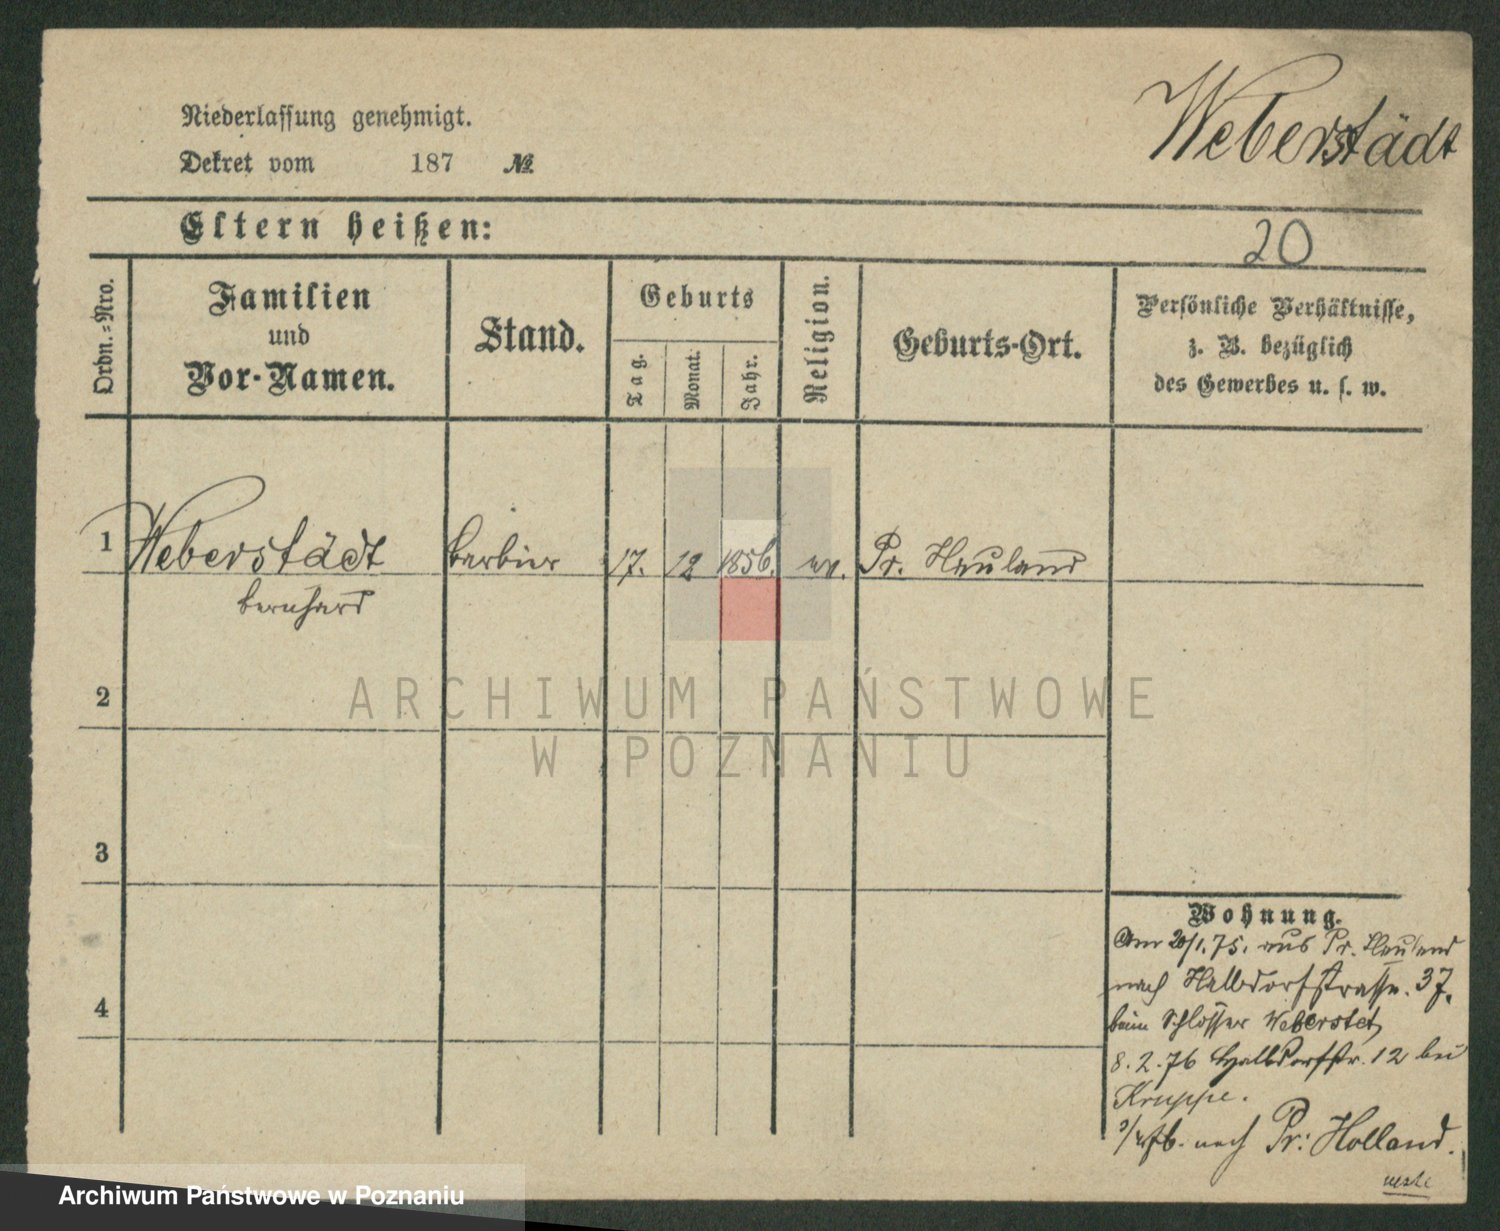 Weberstädt
Niederlassung genehmigt.
Dekret vom 187 №
Eltern heißen:
20
Ordn.-Nro.
Familien
und
Vor-Namen.
Stand.
Geburts
Tag.
Monat.
Jahr.
Religion.
Geburts-Ort.
Persönliche Verhältnisse,
z. B. bezüglich
des Gewerbes u. s. w.
1 Weberstädt Barbier 17. 12 1856. ev. Pr. Heuland
Bernhard
2
ARCHIWUM PAŃSTWOWE
W POZNANIU
3
4
Wohnung.
Am 20/1.75. aus Pr. Heuland
nach Halbdorfstrasse. 37.
beim Schlosser Weberstet,
8.2.76 Halbdorfstr. 12 bei
Kruppe.
nach Pr: Holland.
Archiwum Państwowe w Poznaniu